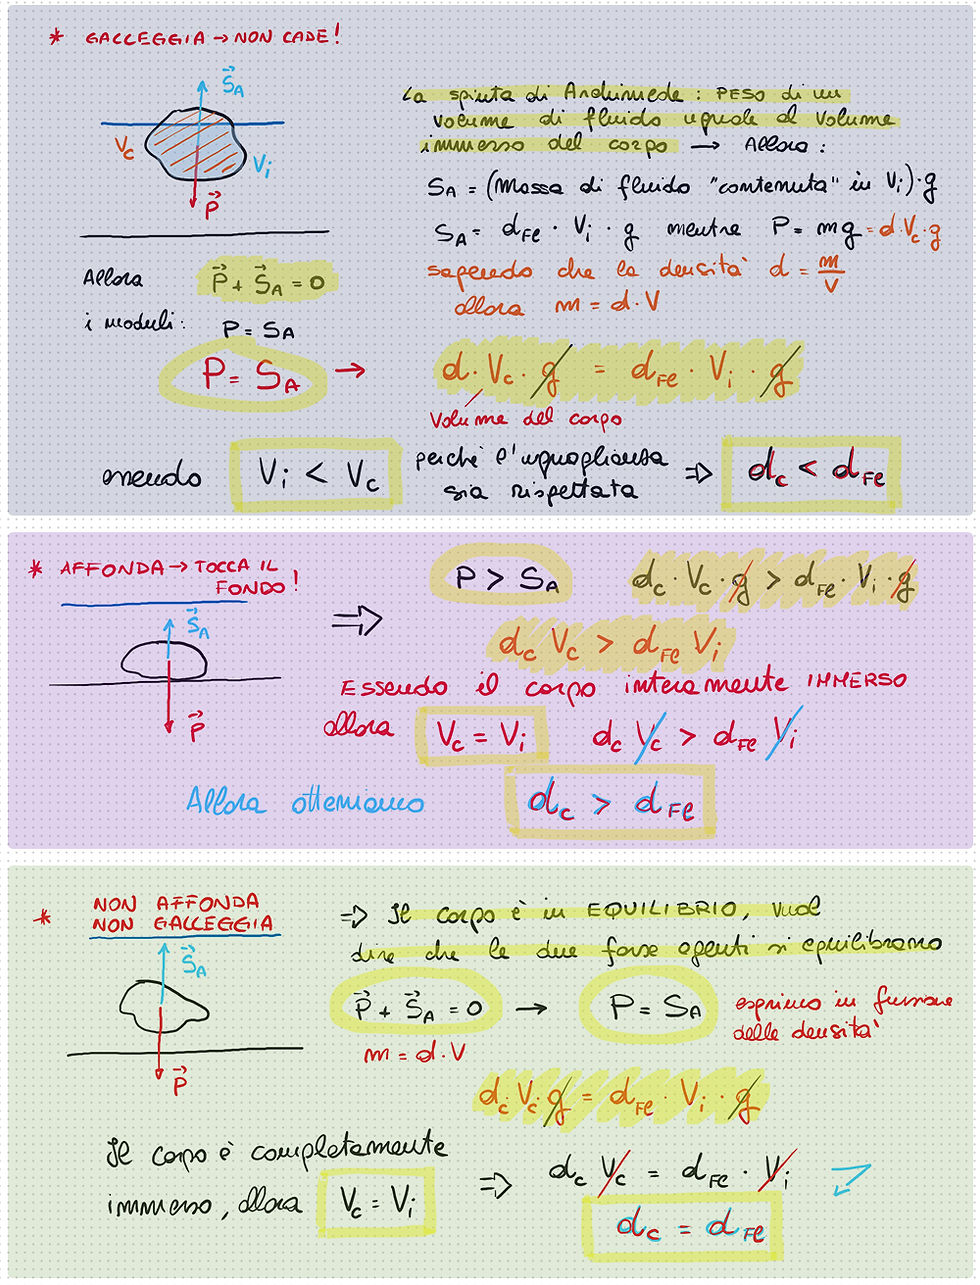 * GALLEGGIA → NON CADE!
S⃗A
Vc
Vi
P⃗
La spinta di Archimede : PESO di un
volume di fluido uguale al volume
immerso del corpo → Allora :
SA = (massa di fluido "contenuta" in Vi)·g
SA = dFe · Vi · g mentre P = mg = d·Vc·g
sapendo che la densità d = m/V
allora m = d·V
Allora P⃗ + S⃗A = 0
i moduli: P = SA
P = SA → d·Vc·g = dFe · Vi · g
Volume del corpo
essendo Vi < Vc perché l'uguaglianza
sia rispettata ⇒ dc < dFe
* AFFONDA → TOCCA IL
FONDO!
S⃗A
P⃗
⇒ P > SA dc·Vc·g > dFe·Vi·g
dc Vc > dFe Vi
Essendo il corpo interamente IMMERSO
allora Vc = Vi dc Vc > dFe Vi
Allora otteniamo dc > dFe
* NON AFFONDA
NON GALLEGGIA
S⃗A
P⃗
⇒ Il corpo è in EQUILIBRIO, vuol
dire che le due forze agenti si equilibrano
P⃗ + S⃗A = 0 → P = SA esprimo in funzione
delle densità
m = d·V
dc·Vc·g = dFe · Vi · g
Il corpo è completamente
immerso, allora Vc = Vi ⇒ dc Vc = dFe · Vi
dc = dFe